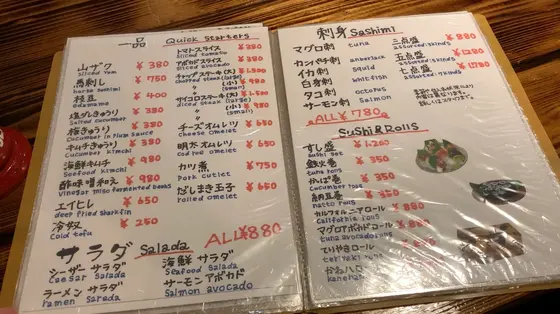 一品 Quick Starters
山ザク ¥380
Sliced Yam
馬刺し ¥750
枝豆 ¥400
edamame
塩だれきゅうり ¥380
Salted Cucumber
梅きゅうり ¥380
Cucumber in Plum Sauce
キムチきゅうり ¥380
Cucumber Kimchi
海鮮キムチ ¥980
Seafood Kimchi
酢味噌和え ¥980
Vinegar miso
エイヒレ ¥650
deep fried Sharkfin
冷奴 ¥250
Cold tofu
トマトスライス ¥380
Sliced tomato
アボカドスライス ¥380
Sliced avocado
チャップステーキ(大) ¥1,500
(小) ¥980
サイコロステーキ(大) ¥1,500
(小) ¥980
チーズオムレツ ¥650
Cheese omelet
明太オムレツ ¥650
Cod roe omelet
カツ煮 ¥750
Pork cutlet
だしまき玉子 ¥650
rolled omelet
サラダ Salada ALL¥880
シーザーサラダ
Caesar Salada
ラーメンサラダ
ramen Sarada
海鮮サラダ
Seafood Salada
サーモンアボカド
Salmon avocado
刺身 Sashimi
マグロ刺 tuna
カンパチ刺 amberjack
イカ刺 squid
白身刺 whitfish
タコ刺 octopus
サーモン刺 Salmon
ALL¥780
三点盛 ¥880
assorted 3kinds
五点盛 ¥1,280
assorted 5kinds
七点盛 ¥1,780
assorted 7kinds
Sushi&Rolls
すし盛 ¥1,260
sushi set
鉄火巻 ¥350
tuna rolls
かっぱ巻 ¥350
Cucumber rolls
納豆巻 ¥350
natto rolls
カルフォルニアロール ¥880
California rolls
マグロアボカドロール ¥880
tuna avocado rolls
てりやきロール ¥880
teriyaki rolls